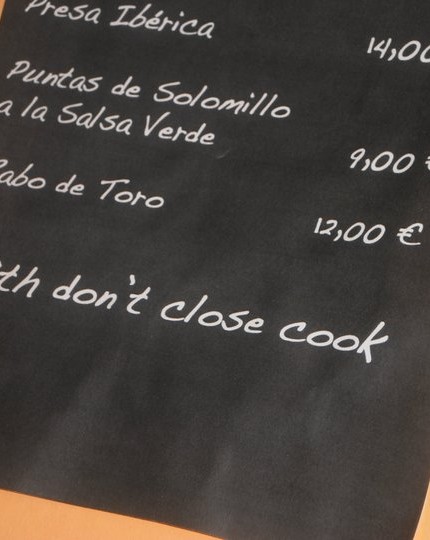 Presa Ibérica
14,00
Puntas de Solomillo
a la Salsa Verde
9,00 €
abo de Toro
12,00 €
th don't close cook